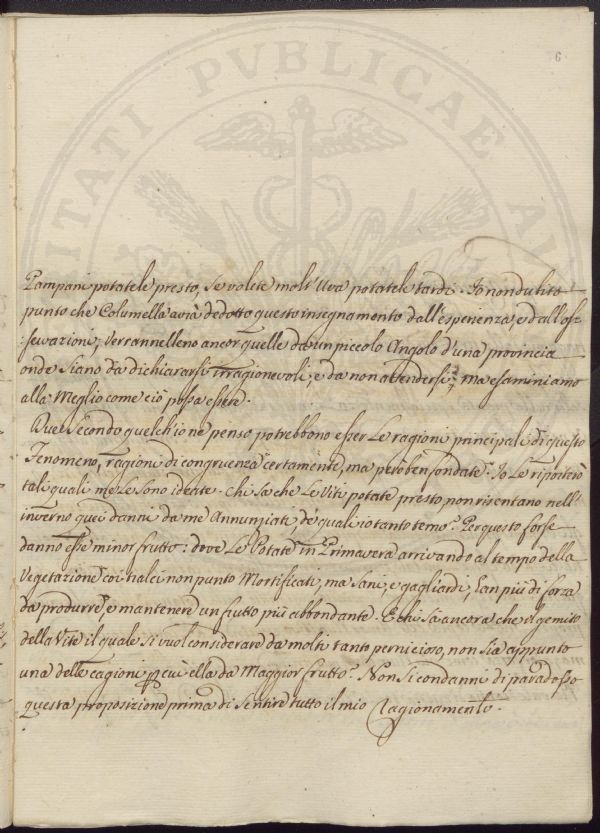 6
UTILITATI PVBLICAE
Pampani potatele presto, se volete molt'Uva potatele tardi. Io non dubito
punto che Columella avrà dedotto questo insegnamento dall'esperienza, e dall'os-
:servazioni; Verran nelleno ancor quelle da un piccolo Angolo d'una provincia
onde siano da dichiararsi irragionevoli, e da non attendersi; ma esaminiamo
alla Meglio come ciò possa essere.
Due secondo quelch'io ne penso potrebbono esser le ragioni principali di questo
Fenomeno, ragioni di congruenza certamente, ma però ben fondate. Io le riporterò
tali quali me le sono ideate. Chi sa che le Viti potate presto non risentano nell'
inverno quei danni da me Annunziati de' quali io tanto temo? Per questo forse
danno esse minor frutto: dove le Potate in Primavera arrivando al tempo della
Vegetazione coi tralci non punto Mortificati, ma sani, e gagliardi, an più di forza
da produrre e mantenere un frutto più abbondante. E chi sa ancora che il gemito
della Vite il quale si vuol considerare da molti tanto pernicioso, non sia appunto
una delle cagioni p cui ella da Maggior frutto? Non si condanni di paradosso
questa proposizione prima di sentire tutto il mio Ragionamento.